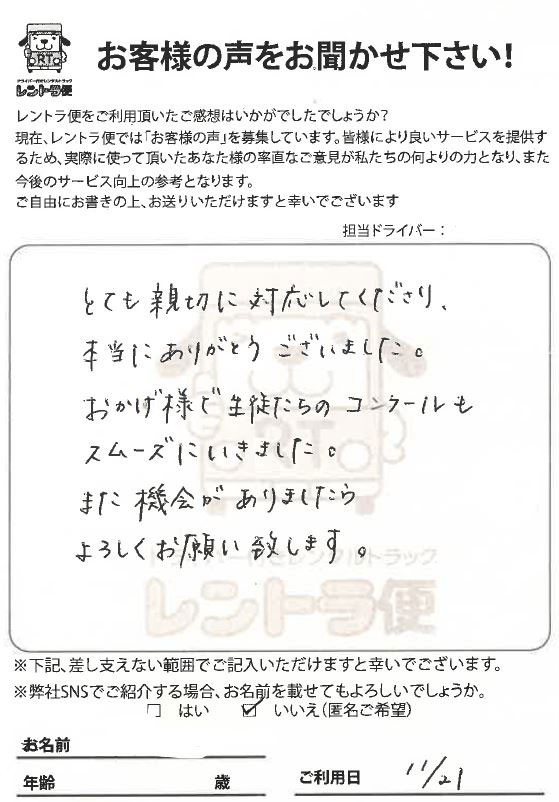 お客様の声をお聞かせ下さい!
RT
ドライバー付きレンタルトラック
レントラ便
レントラ便をご利用頂いたご感想はいかがでしたでしょうか?
現在、レントラ便では「お客様の声」を募集しています。皆様により良いサービスを提供す
るため、実際に使って頂いたあなた様の率直なご意見が私たちの何よりの力となり、また
今後のサービス向上の参考となります。
ご自由にお書きの上、お送りいただけますと幸いでございます
担当ドライバー:
とても親切に対応してくださり、
本当にありがとうございました。
おかげ様で生徒たちのコンクールも
スムーズにいきました。
また機会がありましたら
よろしくお願い致します。
RT
ドライバー付きレンタルトラック
レントラ便
※下記、差し支えない範囲でご記入いただけますと幸いでございます。
※弊社SNSでご紹介する場合、お名前を載せてもよろしいでしょうか。
□ はい ☑ いいえ(匿名ご希望)
お名前
年齢 歳 ご利用日 11/21